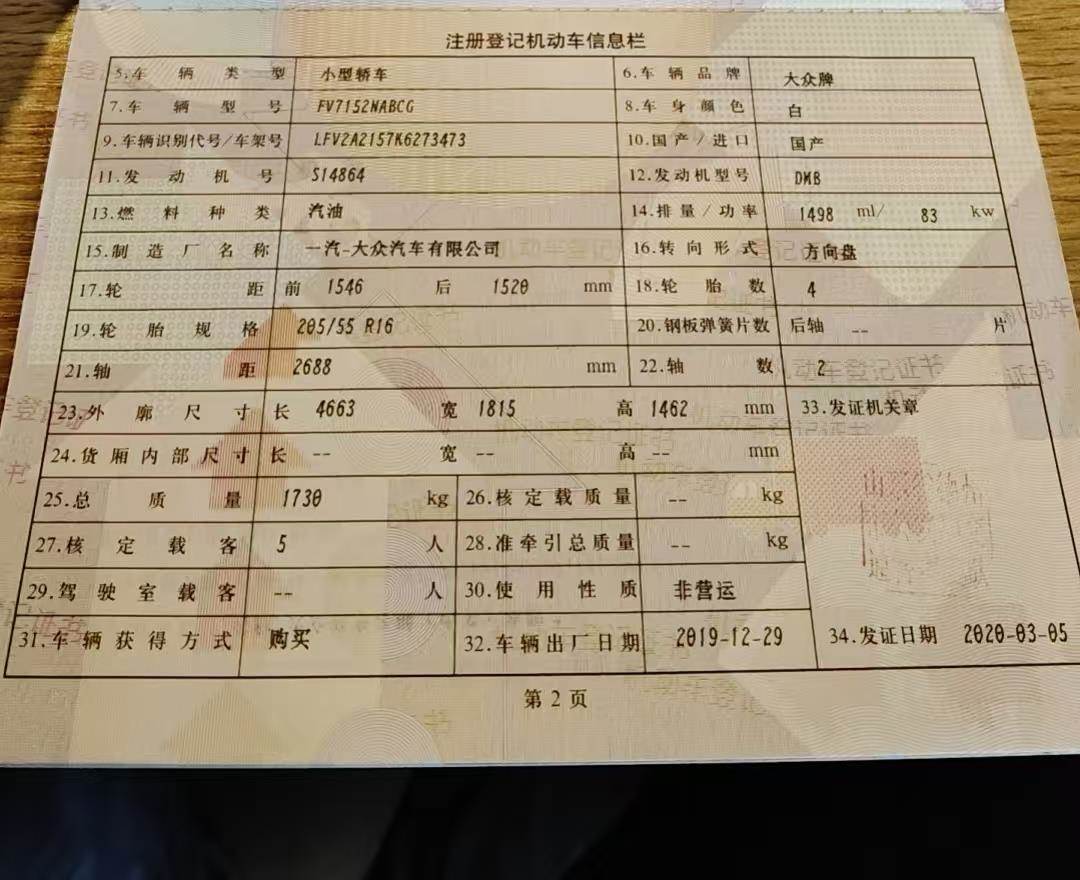 注册登记机动车信息栏
5.车辆类型 小型轿车 6.车辆品牌 大众牌
7.车辆型号 FV7152NABCG 8.车身颜色 白
9.车辆识别代号/车架号 LFV2A2157K6273473 10.国产/进口 国产
11.发动机号 S14864 12.发动机型号 DMB
13.燃料种类 汽油 14.排量/功率 1498 ml/ 83 kw
15.制造厂名称 一汽-大众汽车有限公司 16.转向形式 方向盘
17.轮距 前 1546 后 1520 mm 18.轮胎数 4
19.轮胎规格 205/55 R16 20.钢板弹簧片数 后轴 -- 片
21.轴距 2688 mm 22.轴数 2
23.外廓尺寸 长 4663 宽 1815 高 1462 mm 33.发证机关章
24.货厢内部尺寸 长 -- 宽 -- 高 -- mm
25.总质量 1730 kg 26.核定载质量 -- kg
27.核定载客 5 人 28.准牵引总质量 -- kg
29.驾驶室载客 -- 人 30.使用性质 非营运
31.车辆获得方式 购买 32.车辆出厂日期 2019-12-29 34.发证日期 2020-03-05
第 2 页